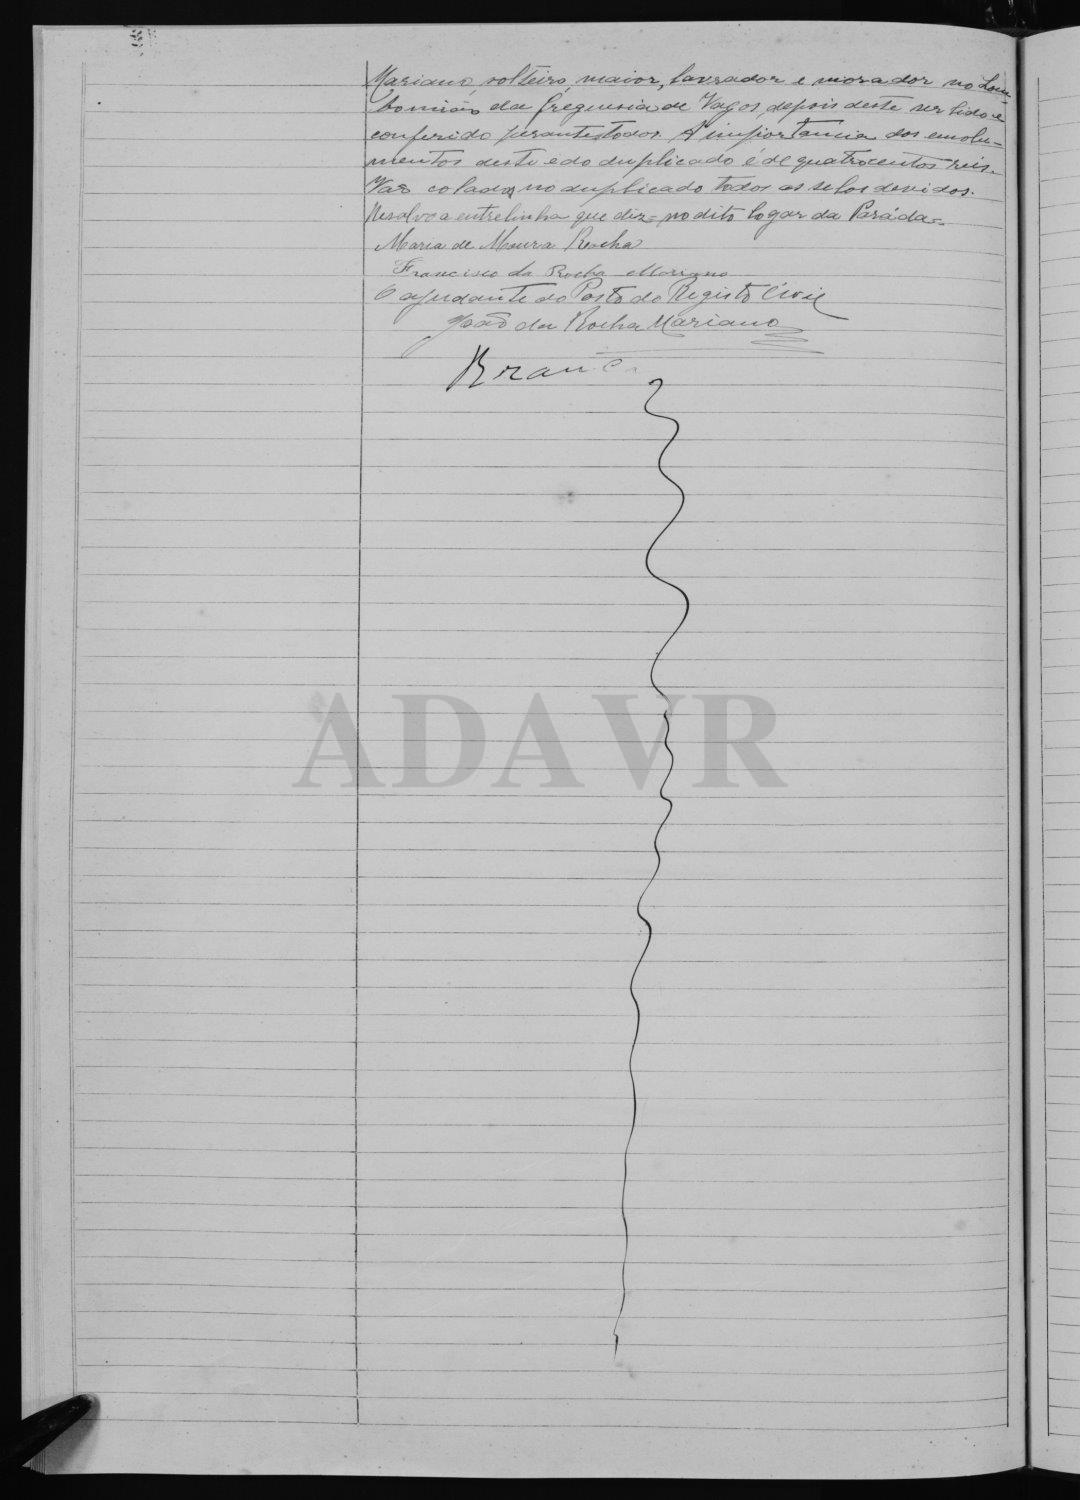 Mariano, solteiro, maior, lavrador e morador no Lom-
bomião da freguesia de Vagos, depois deste ser lido e
conferido perante todos. A importancia dos emolu-
mentos deste e do duplicado é de quatrocentos reis.
Vão colados no duplicado todos os selos devidos.
Resalvo a entrelinha que diz = no dito logar da Paráda =
Maria de Moura Rocha
Francisco da Rocha Mariano
O ajudante do Posto do Registo Civil
João da Rocha Mariano
Branco
ADAVR